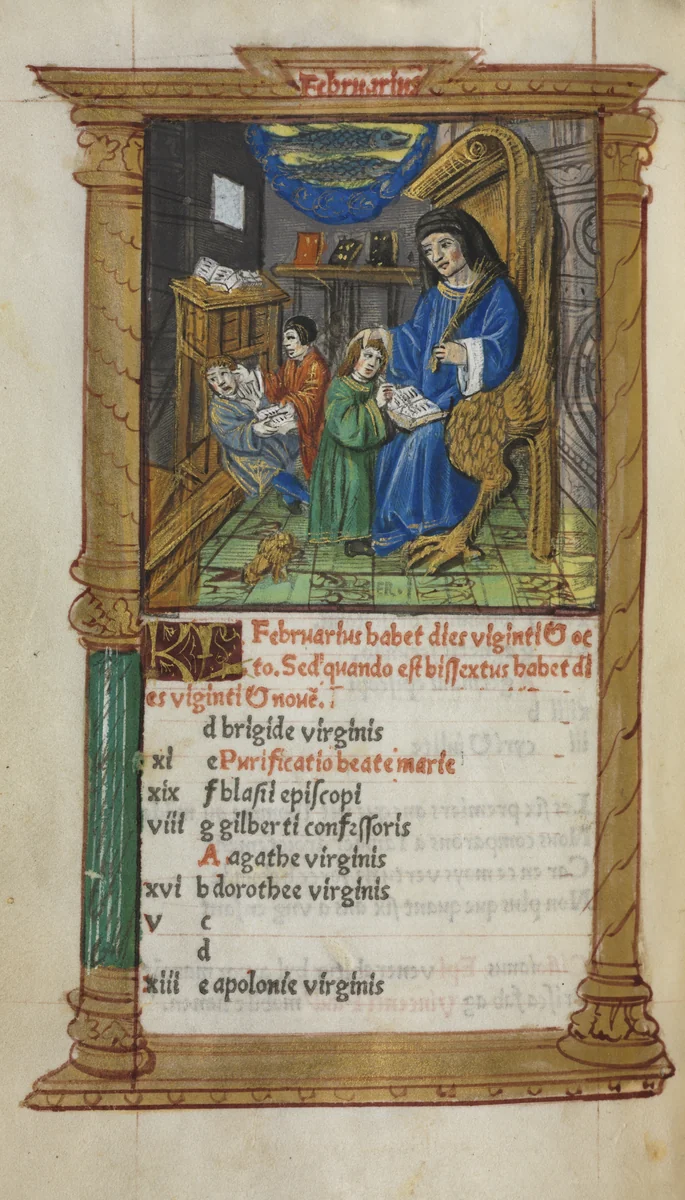 Februarius
ER.
KL Februarius habet dies viginti & oc
to. Sed quando est bissextus habet di
es viginti & nouē.
d brigide virginis
xi e Purificatio beate marie
xix f blasii episcopi
viii g gilberti confessoris
A agathe virginis
xvi b dorothee virginis
v c
d
xiii e apolonie virginis